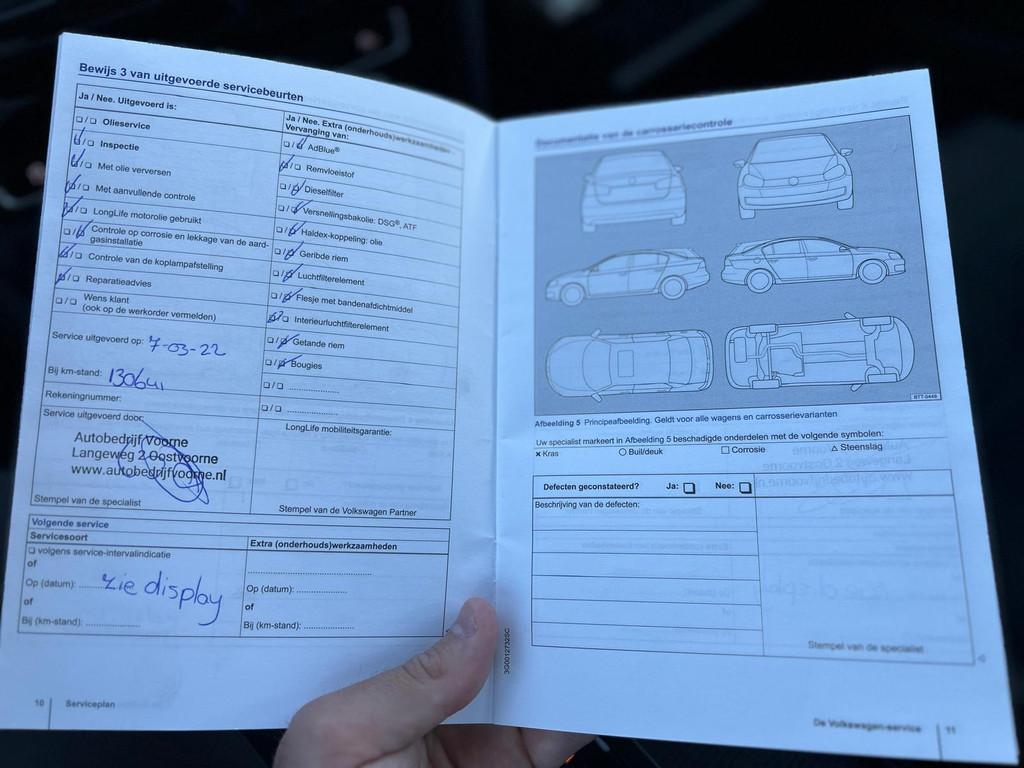 Bewijs 3 van uitgevoerde servicebeurten
Ja / Nee. Uitgevoerd is:
☐/☐ Olieservice
☑/☐ Inspectie
☑/☐ Met olie verversen
☑/☐ Met aanvullende controle
☑/☐ LongLife motorolie gebruikt
☐/☑ Controle op corrosie en lekkage van de aard-
gasinstallatie
☑/☐ Controle van de koplampafstelling
☑/☐ Reparatieadvies
☐/☐ Wens klant
(ook op de werkorder vermelden)
Service uitgevoerd op: 7-03-22
Bij km-stand:
Rekeningnummer:
Service uitgevoerd door:
Autobedrijf Voorne
Langeweg 2 Oostvoorne
www.autobedrijfvoorne.nl
Stempel van de specialist
Ja / Nee. Extra (onderhouds)werkzaamheden -
Vervanging van:
☐/☑ AdBlue®
☑/☐ Remvloeistof
☐/☑ Dieselfilter
☐/☑ Versnellingsbakolie: DSG®, ATF
☐/☑ Haldex-koppeling: olie
☐/☑ Geribde riem
☐/☑ Luchtfilterelement
☐/☑ Flesje met bandenafdichtmiddel
☑/☐ Interieurluchtfilterelement
☐/☑ Getande riem
☐/☑ Bougies
☐/☐ ....................
☐/☐ ....................
LongLife mobiliteitsgarantie:
Stempel van de Volkswagen Partner
Volgende service
Servicesoort
☐ volgens service-intervalindicatie
of
Op (datum): ........ zie display
of
Bij (km-stand): ................
Extra (onderhouds)werkzaamheden
..............................
Op (datum): ................
of
Bij (km-stand): ................
10 Serviceplan
Documentatie van de carrosseriecontrole
BTT-0449
Afbeelding 5 Principeafbeelding. Geldt voor alle wagens en carrosserievarianten
Uw specialist markeert in Afbeelding 5 beschadigde onderdelen met de volgende symbolen:
× Kras ○ Buil/deuk □ Corrosie △ Steenslag
Defecten geconstateerd? Ja: ☐ Nee: ☐
Beschrijving van de defecten:
Stempel van de specialist
3G0012732SC
De Volkswagen-service 11